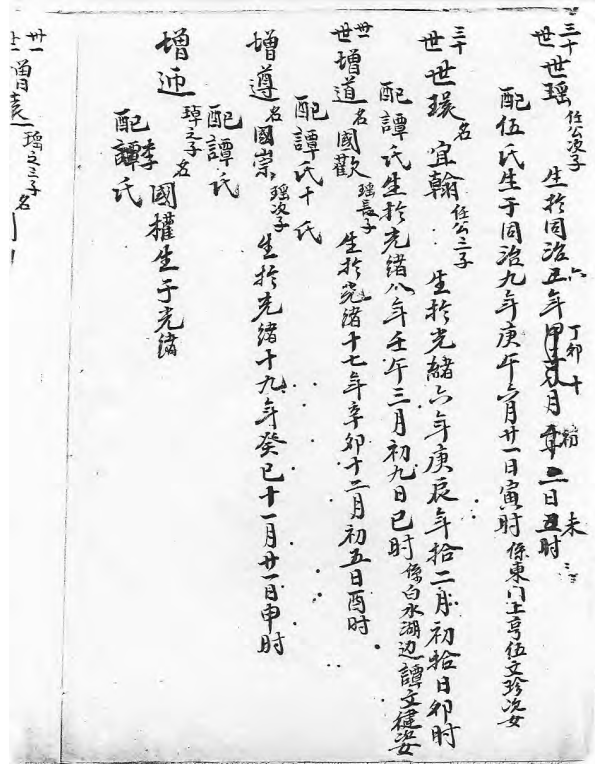 三十世 世瑤 任公次子 生於同治六年丁卯十月初二日未时
配伍氏生于同治九年庚午六月廿一日寅时 係東门上亨伍文珍次女
三十世 世環 名宜翰 任公三子 生於光緒六年庚辰年拾二月初拾日卯时
配譚氏生於光緒八年壬午三月初九日巳时 係白水湖边譚文次女
卅一世 增道 名國歡 瑤長子 生於光緒十七年辛卯十二月初五日酉时
配譚氏十氏
增遵 名國崇 瑤次子 生於光緒十九年癸巳十一月廿一日申时
配譚氏
增 璋之子 名國權生于光緒
配李氏
卅一世 增 瑤之三子名